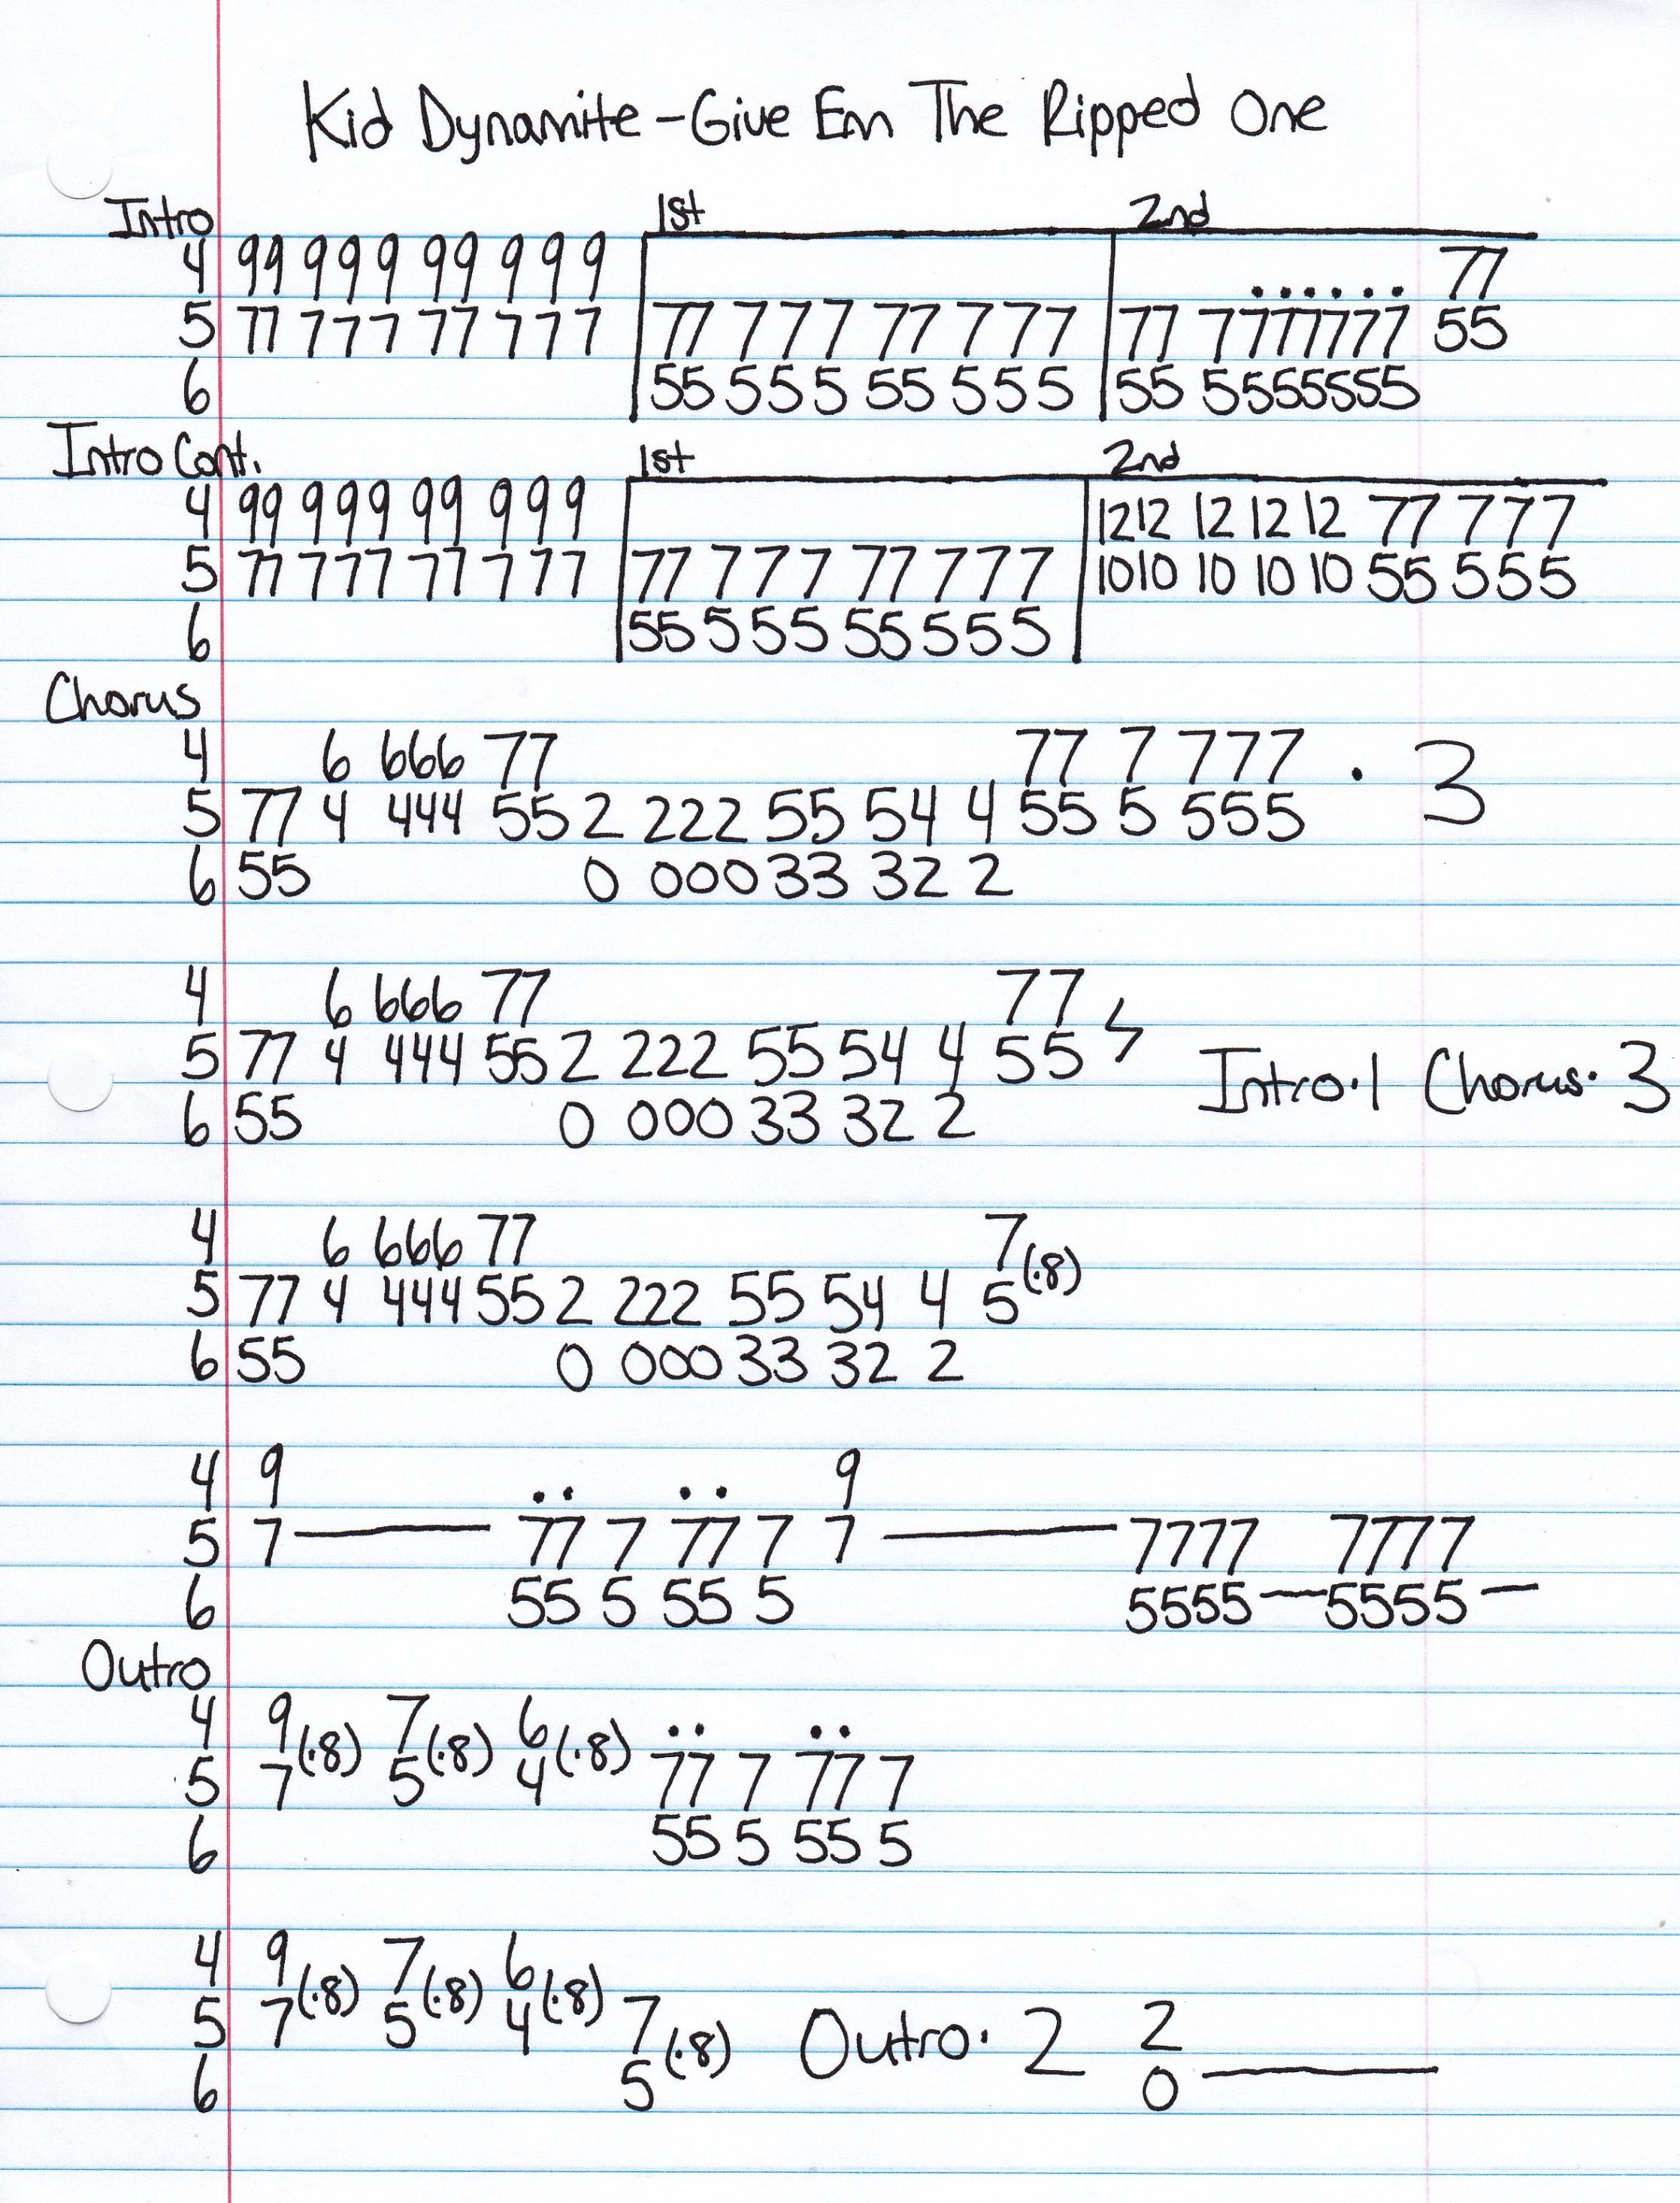 Kid Dynamite - Give Em The Ripped One
Intro 1st 2nd
4 99 999 99 999 ...... 77
5 77 777 77 777 77 777 77 777 77 7777777 55
6 55 555 55 555 55 5555555
Intro Cont. 1st 2nd
4 99 999 99 999 1212 12 12 12 77 777
5 77 777 77 777 77 777 77 777 1010 10 10 10 55 555
6 55 555 55 555
Chorus
4 6 666 77 77 7 777 · 3
5 77 4 444 55 2 222 55 54 4 55 5 555
6 55 0 000 33 32 2
4 6 666 77 77
5 77 4 444 55 2 222 55 54 4 55 Intro·1 Chorus·3
6 55 0 000 33 32 2
4 6 666 77 7
5 77 4 444 55 2 222 55 54 4 5 (·8)
6 55 0 000 33 32 2
4 9 .. .. 9
5 7 — 77 7 77 7 7 — 7777 7777
6 55 5 55 5 5555 — 5555 —
Outro
4 9 (·8) 7 (·8) 6 (·8) .. ..
5 7 5 4 77 7 77 7
6 55 5 55 5
4 9 (·8) 7 (·8) 6 (·8)
5 7 5 4 7 (·8) Outro·2 2
6 5 0 —